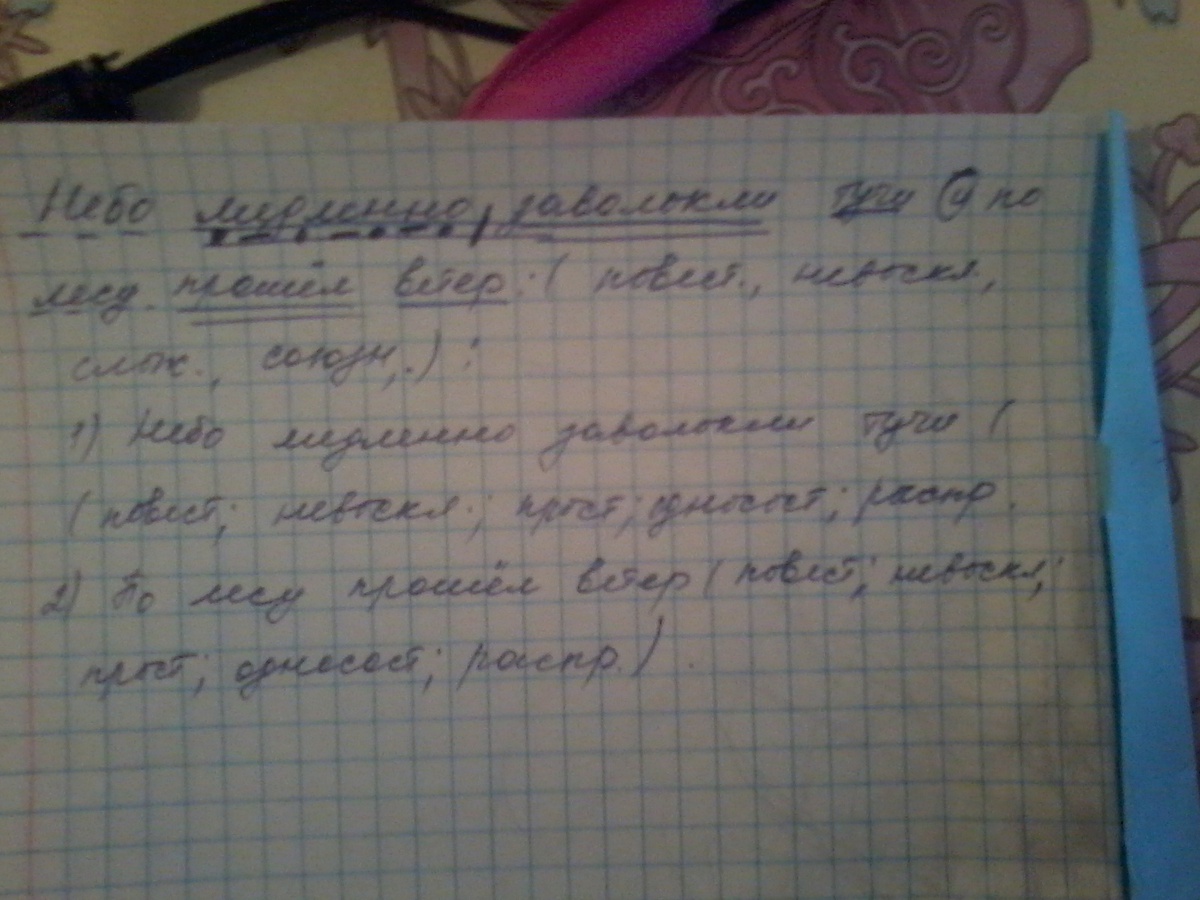 Небо медленно, заволокли тучи а по
лесу прошёл ветер.(повест., невоскл,
слож., союзн,.):
1) Небо медленно заволокли тучи (
(повест; невоскл.; прост; односост; распр.
2) По лесу прошёл ветер (повест; невоскл;
прост; односост; распр.).